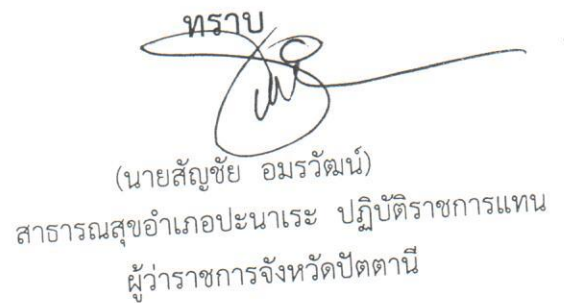 ทราบ
(นายสัญชัย อมรวัฒน์)
สาธารณสุขอำเภอปะนาเระ ปฏิบัติราชการแทน
ผู้ว่าราชการจังหวัดปัตตานี